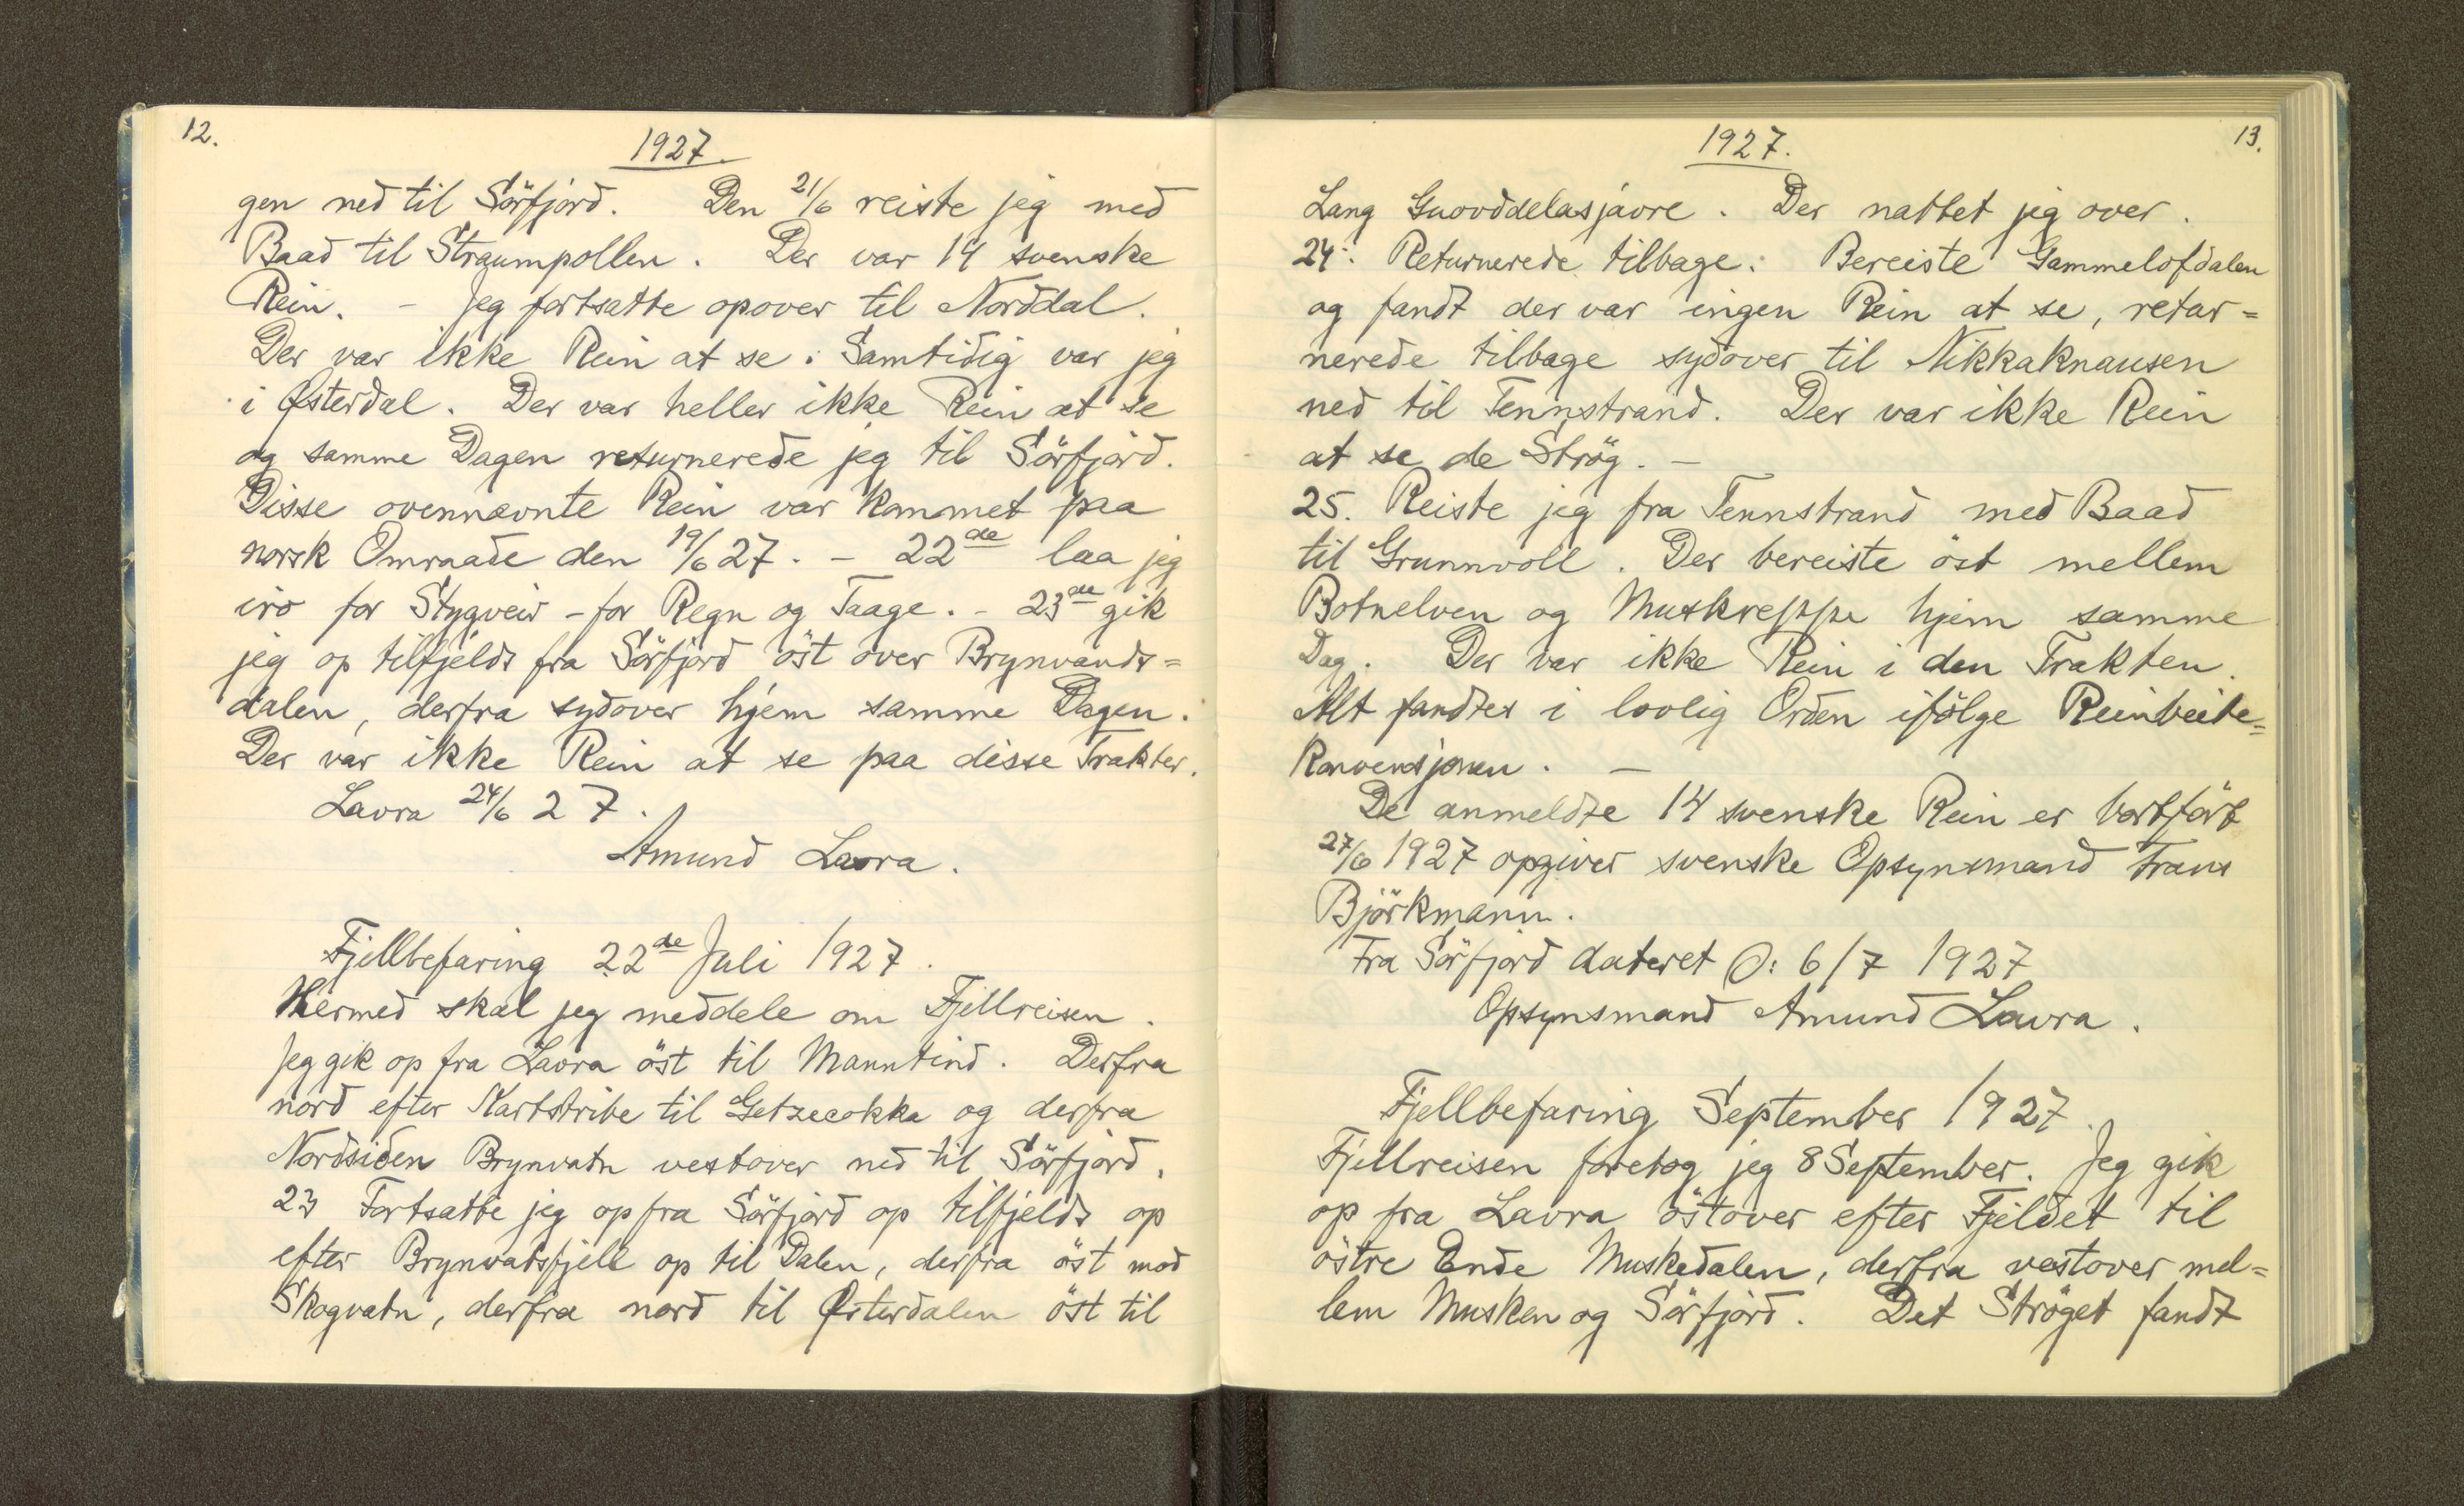 12.
1927.
gen ned til Sörfjord. Den 21/6 reiste jeg med
Baad til Straumpollen. Der var 14 svenske
Rein. - Jeg fortsatte opover til Norddal.
Der var ikke Rein at se. Samtidig var jeg
i Østerdal. Der var heller ikke Rein at se
og samme Dagen returnerede jeg til Sörfjord.
Disse ovennævnte Rein var kommet paa
norsk Omraade den 19/6 27. - 22de laa jeg
iro for Stygveir - for Regn og Taage. - 23de gik
jeg op tilfjelds fra Sörfjord öst over Brynvands=
dalen, derfra sydover hjem samme Dagen.
Der var ikke Rein at se paa disse Trakter.
Lavra 24/6 27.
Amund Lavra.
Fjellbefaring 22de Juli 1927.
Hermed skal jeg meddele om Fjellreisen.
Jeg gik op fra Lavra öst til Manntind. Derfra
nord efter Kartstribe til Getzecokka og derfra
Nordsiden Brynvatn vestover ned til Sörfjord.
23 Fortsatte jeg op fra Sörfjord op tilfjelds op
efter Brynvatsfjell op til Dalen, derfra öst mod
Skogvatn, derfra nord til Østerdalen öst til
1927.
13.
Lang Guovddelasjavre. Der nattet jeg over.
24. Returnerede tilbage. Bereiste Gammelofdalen
og fandt der var ingen Rein at se, retur=
nerede tilbage sydover til Nikkaknausen
ned til Tennstrand. Der var ikke Rein
at se de Strög. -
25. Reiste jeg fra Tennstrand med Baad
til Grunnvoll. Der bereiste öst mellem
Botnelven og Muskreppe hjem samme
Dag. Der var ikke Rein i den Trakten.
Alt fandtes i lovlig Orden ifölge Reinbeite=
Konvensjonen. -
De anmeldte 14 svenske Rein er bortfört
27/6 1927 opgiver svenske Opsynsmand Frans
Björkmann.
Fra Sörfjord dateret O: 6/7 1927
Opsynsmand Amund Lavra.
Fjellbefaring September 1927.
Fjellreisen foretog jeg 8 September. Jeg gik
op fra Lavra östover efter Fjeldet til
östre Ende Muskedalen, derfra vestover mel=
lem Musken og Sörfjord. Det Ströget fandt